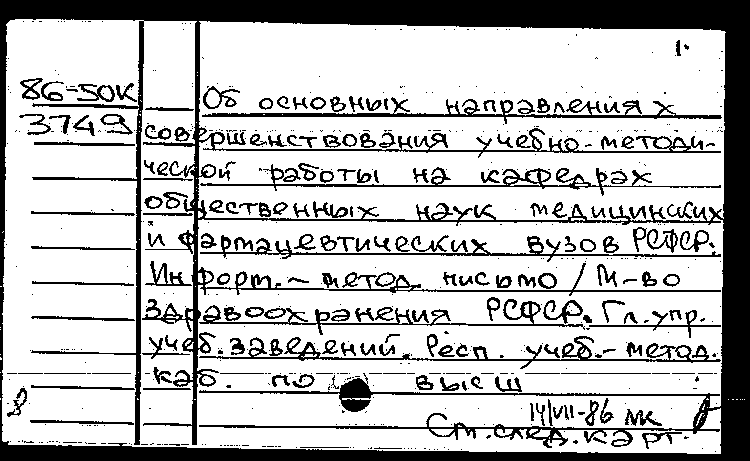 1.
86-50К Об основных направлениях
3749 совершенствования учебно-методи-
ческой работы на кафедрах
общественных наук медицинских
и фармацевтических вузов РСФСР.
Информ.-метод. письмо / М-во
здравоохранения РСФСР. Гл. упр.
учеб. заведений. Респ. учеб.-метод.
каб. по высш
14/VII-86
8 См. след. карт.